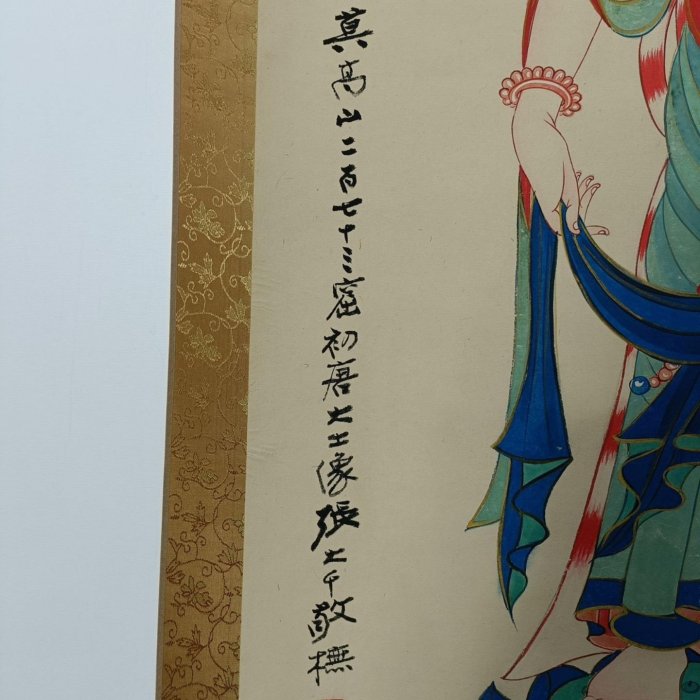 莫高山二百七十三窟初唐大士像張大千敬橅